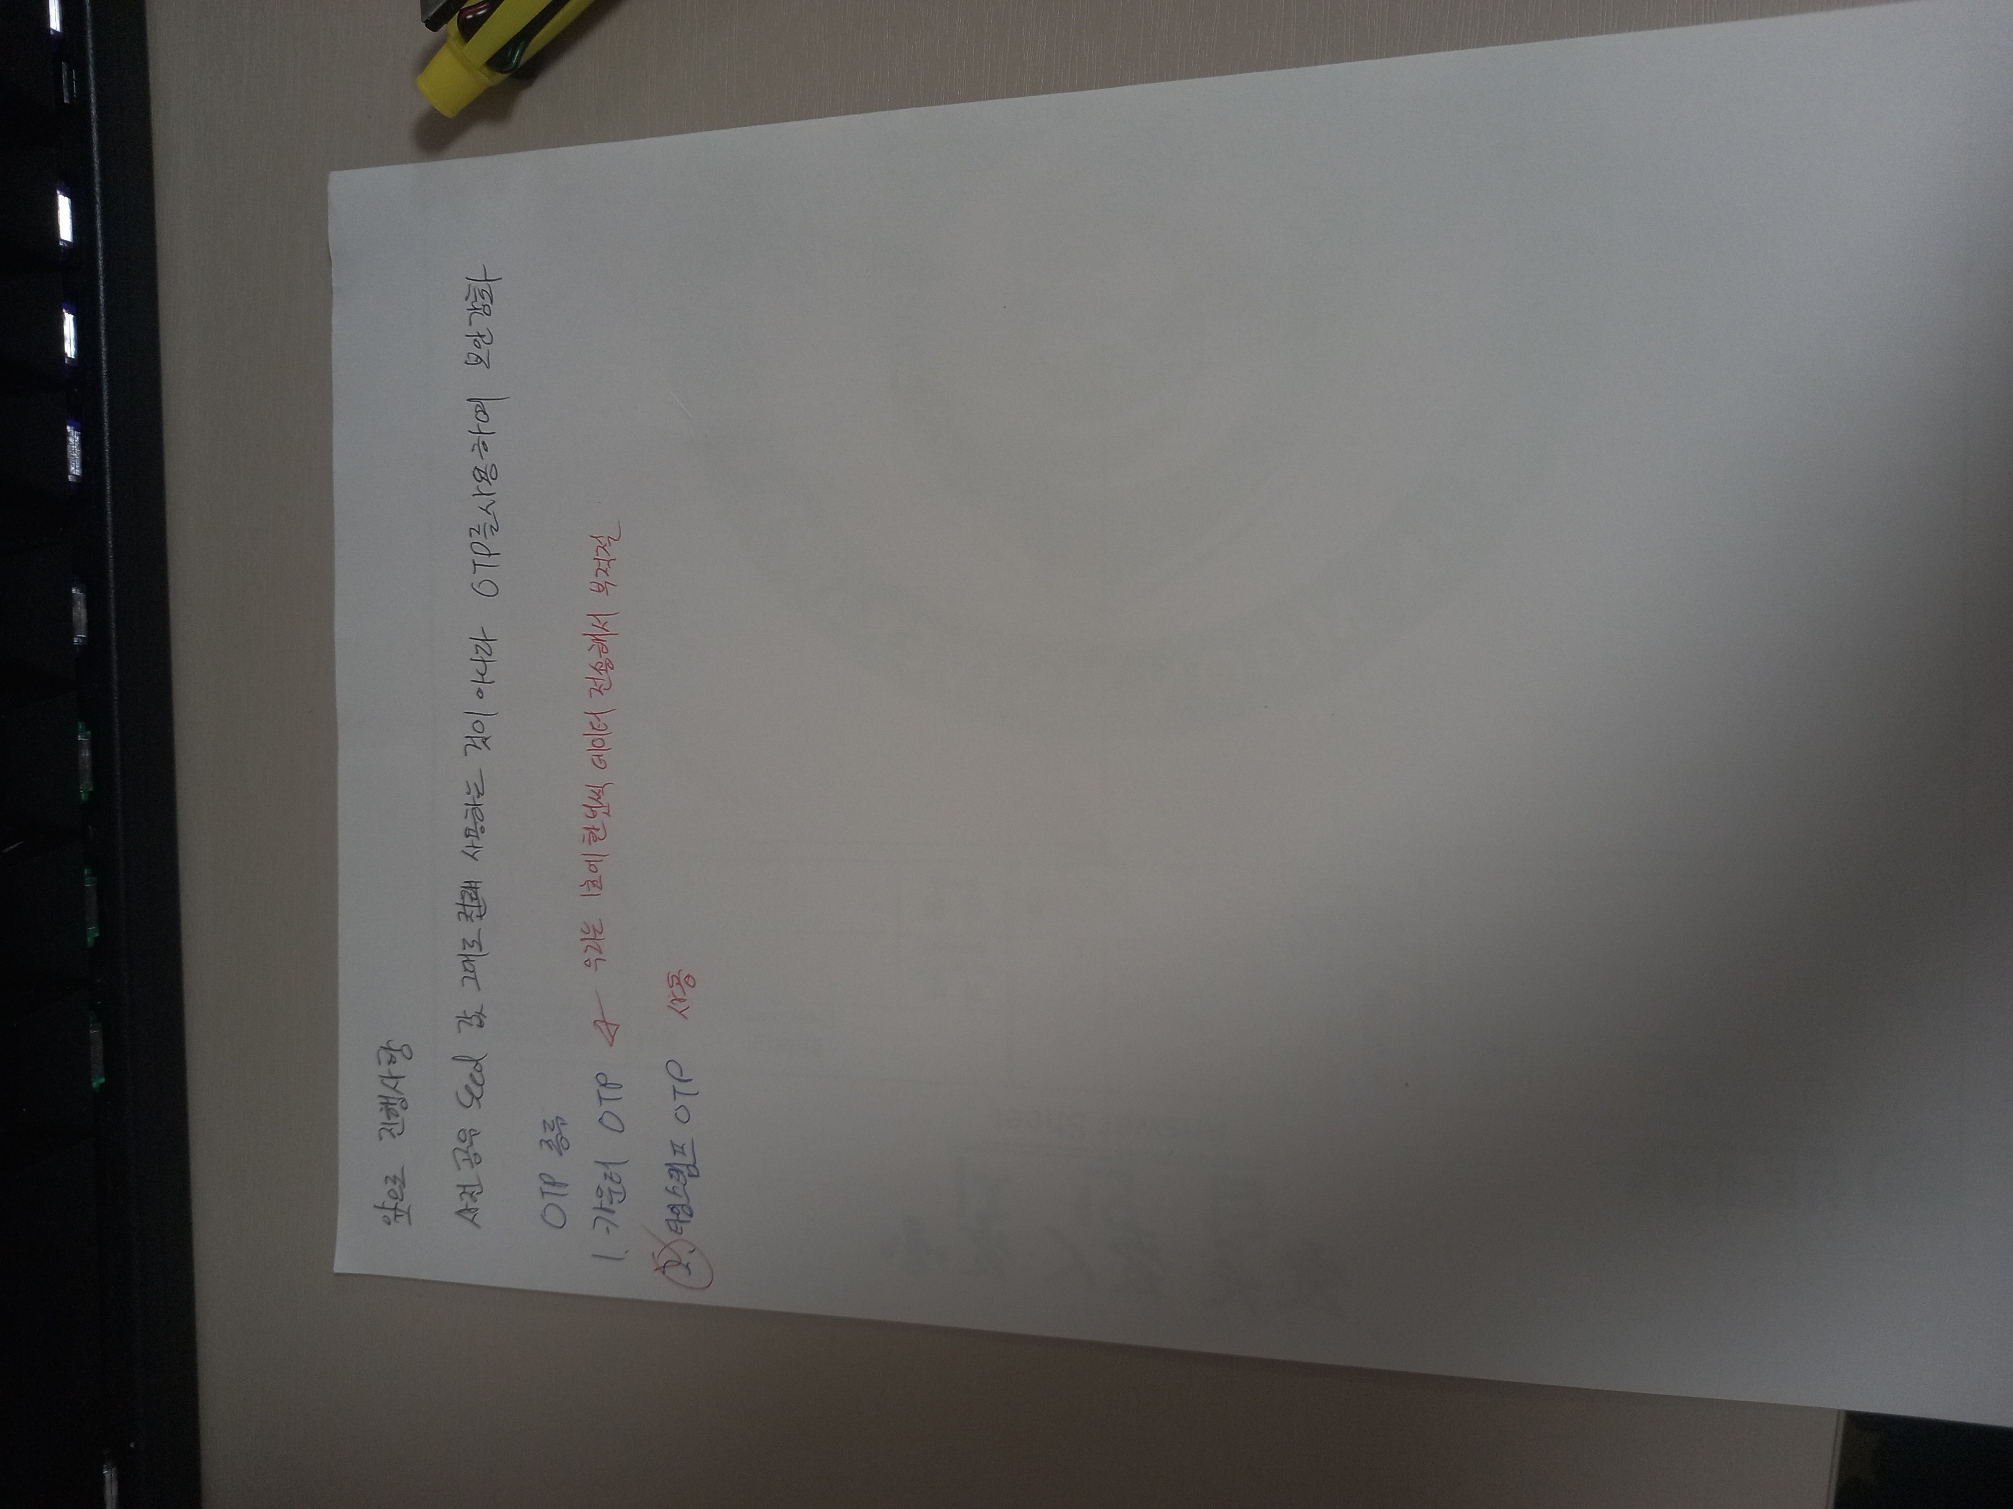 앞으로 진행사항
사전 공유 Seed 값 그대로 사용하는 것이 아니라 OTP를 사용하여 보안강화
OTP 종류
1. 카운터 OTP ← 우리는 1초에 한번씩 데이터 전송해서 부적절
2. 타임스탬프 OTP 사용